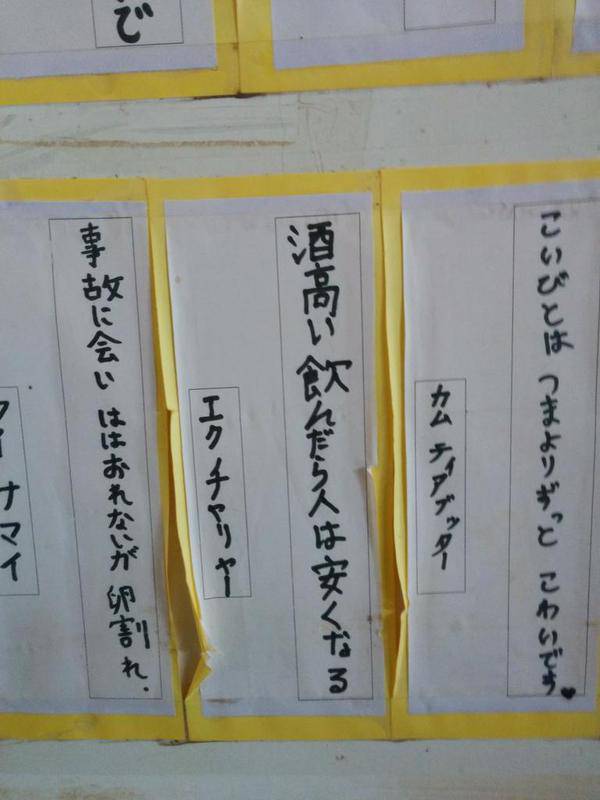 で
こいびとは つまよりずっと こわいです♥
カム ティアブッター
酒高い 飲んだら人は安くなる
エク チャリヤー
事故に会い ははおれないが 卵割れ.
ナマイ